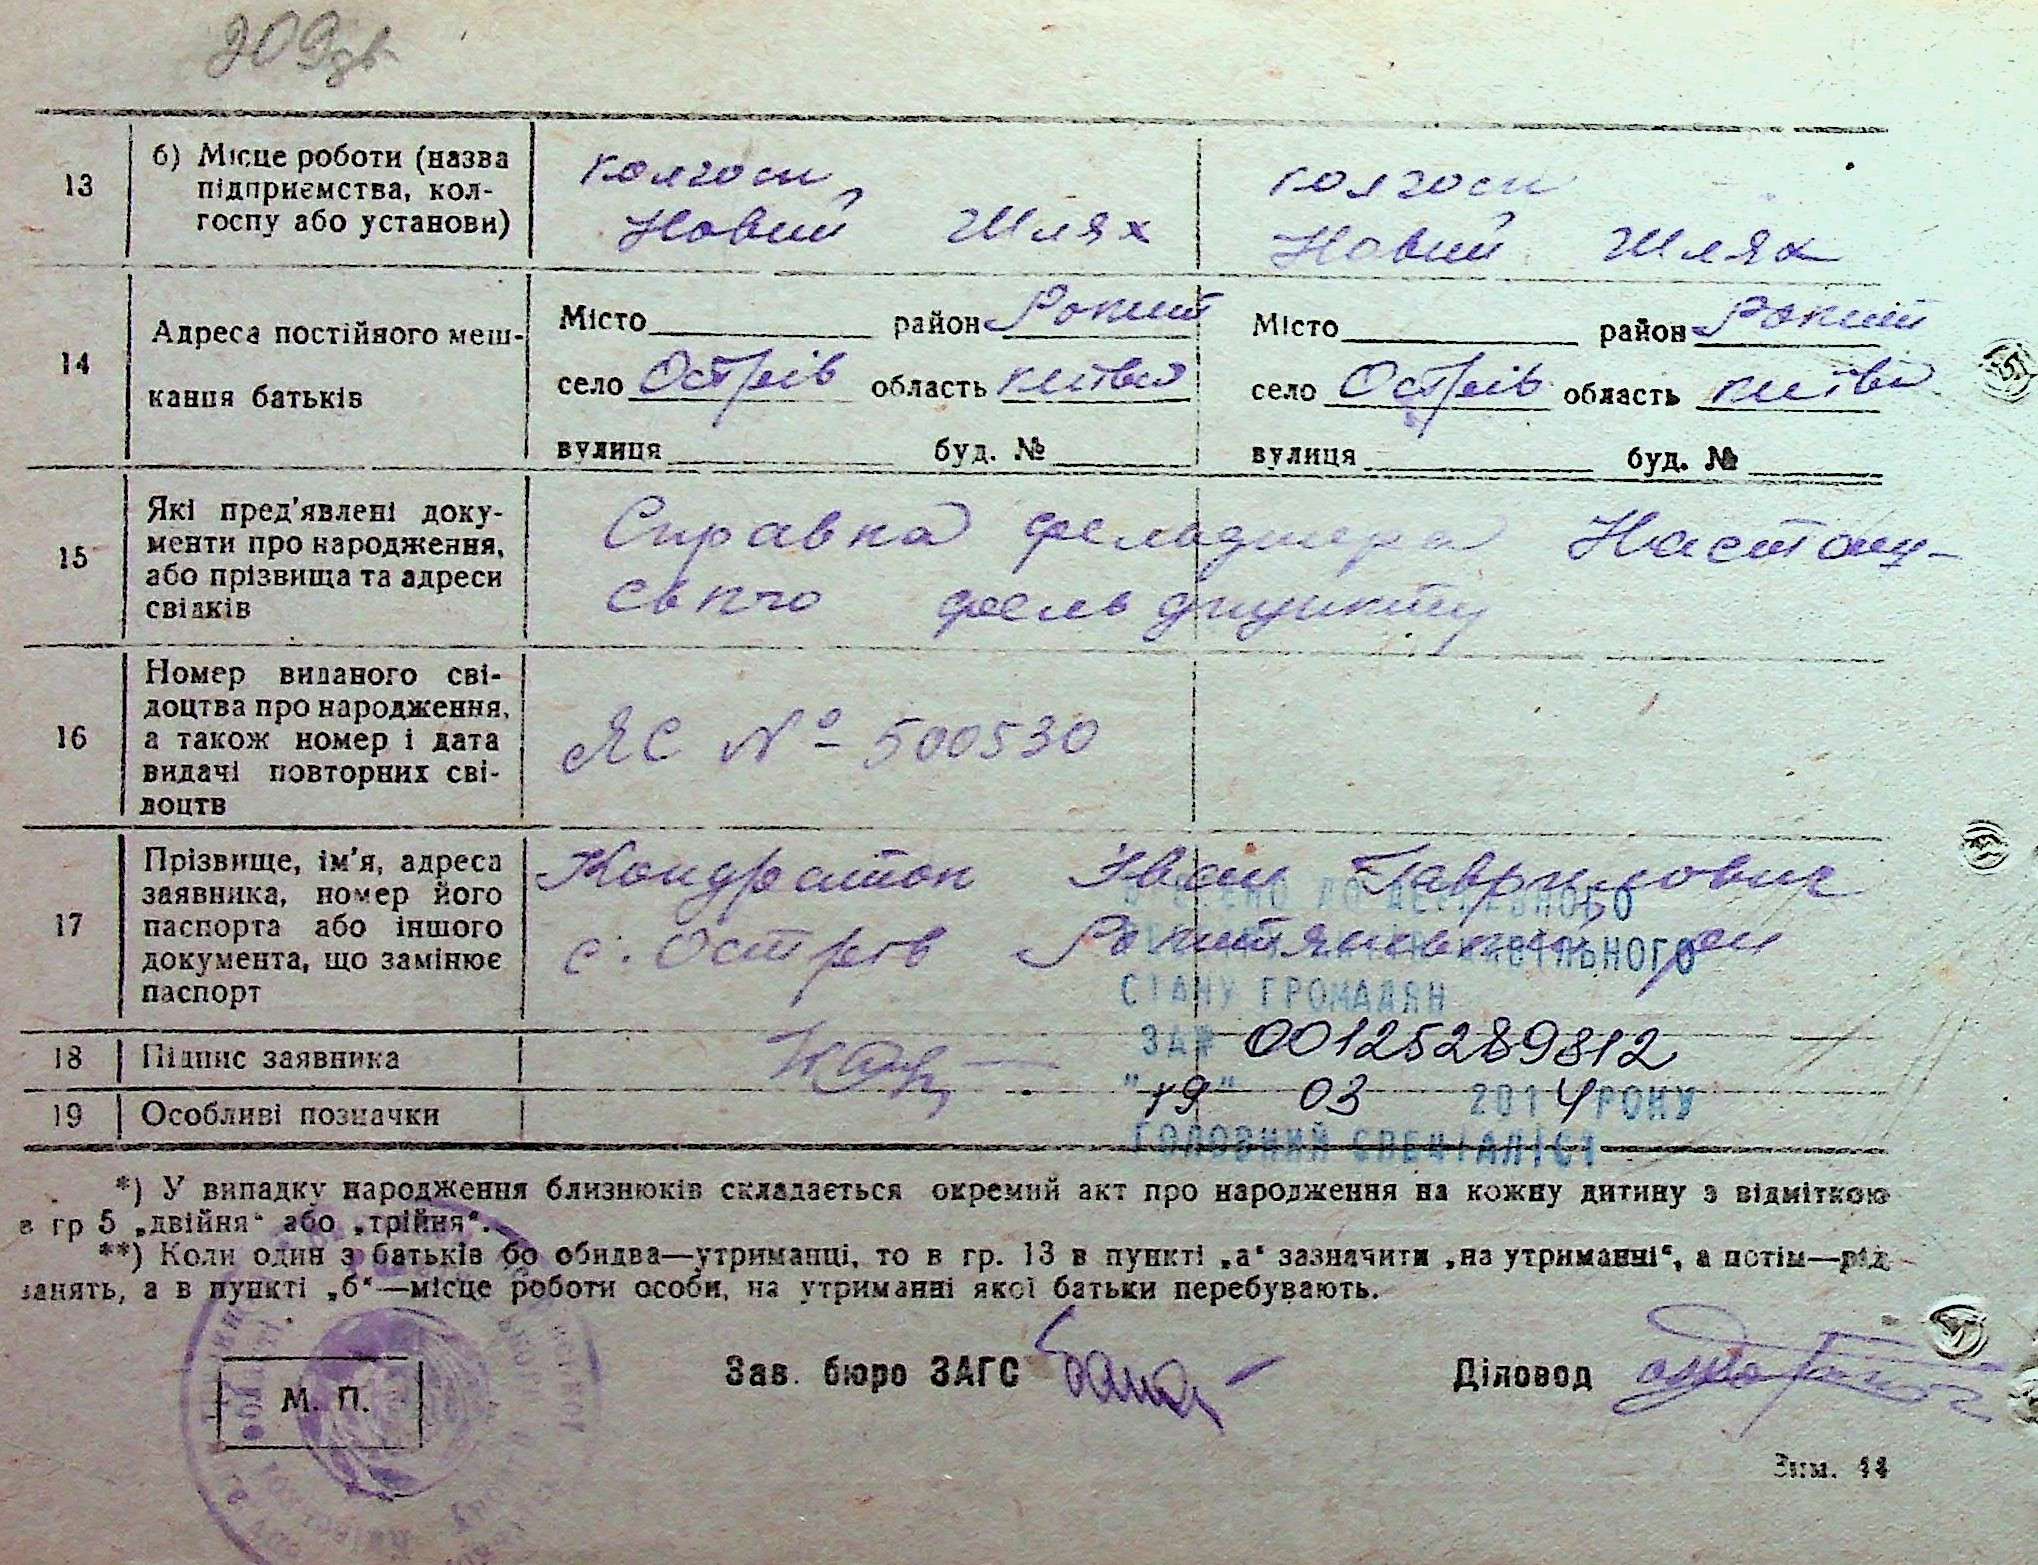 209зв
13
б) Місце роботи (назва
підприємства, кол-
госпу або установи)
колгосп
Новий Шлях
колгосп
Новий Шлях
14
Адреса постійного меш-
канця батьків
Місто район Рокит
село Острів область київсь
вулиця буд. №
Місто район Рокит
село Острів область київ
вулиця буд. №
15
Які пред'явлені доку-
менти про народження,
або прізвища та адреси
свідків
Справка фельдшера
фельдпункту
16
Номер виданого сві-
доцтва про народження,
а також номер і дата
видачі повторних сві-
доцтв
ЯС № 500530
17
Прізвище, ім'я, адреса
заявника, номер його
паспорта або іншого
документа, що замінює
паспорт
Іван Гаврилович
с. Острів
СТАНУ ГРОМАДЯН
ЗА № 00125289812
"19" 03 2014 РОКУ
ГОЛОВНИЙ СПЕЦІАЛІСТ
18
Підпис заявника
19
Особливі позначки
*) У випадку народження близнюків складається окремий акт про народження на кожну дитину з відміткою
в гр 5 „двійня“ або „трійня“.
**) Коли один з батьків бо обидва—утриманці, то в гр. 13 в пункті „а“ зазначити „на утриманні“, а потім—рід
занять, а в пункті „б“—місце роботи особи, на утриманні якої батьки перебувають.
М. П.
Зав. бюро ЗАГС
Діловод